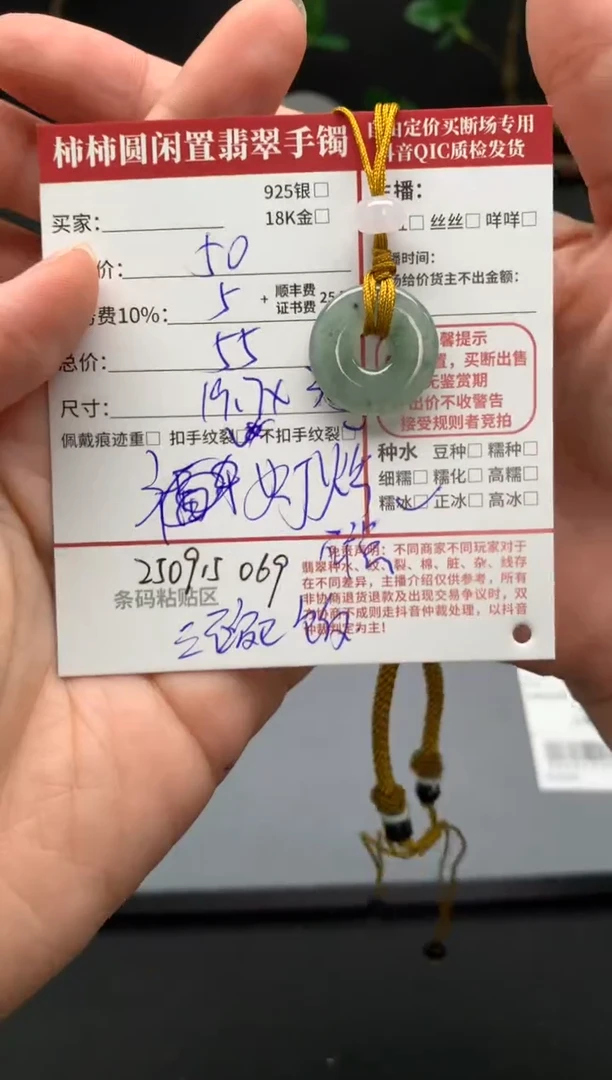 柿柿圆闲置翡翠手镯
由定价买断场专用
抖音QIC质检发货
925银□
18K金□
买家：
价： 50
费10%： 5 + 顺丰费 证书费 25
总价： 55
尺寸： 19.7X
佩戴痕迹重□ 扣手纹裂□ 不扣手纹裂□
250915 069
条码粘贴区
主播：
□ 丝丝□ 咩咩□
播时间：
场给价货主不出金额：
馨提示
置，买断出售
无鉴赏期
出价不收警告
接受规则者竞拍
种水 豆种□ 糯种□
细糯□ 糯化□ 高糯□
糯冰□ 正冰□ 高冰□
免责声明：不同商家不同玩家对于
翡翠种水、纹、裂、棉、脏、杂、线存
在不同差异，主播介绍仅供参考，所有
非协商退货退款及出现交易争议时，双
方协商不成则走抖音仲裁处理，以抖音
仲裁判定为主！